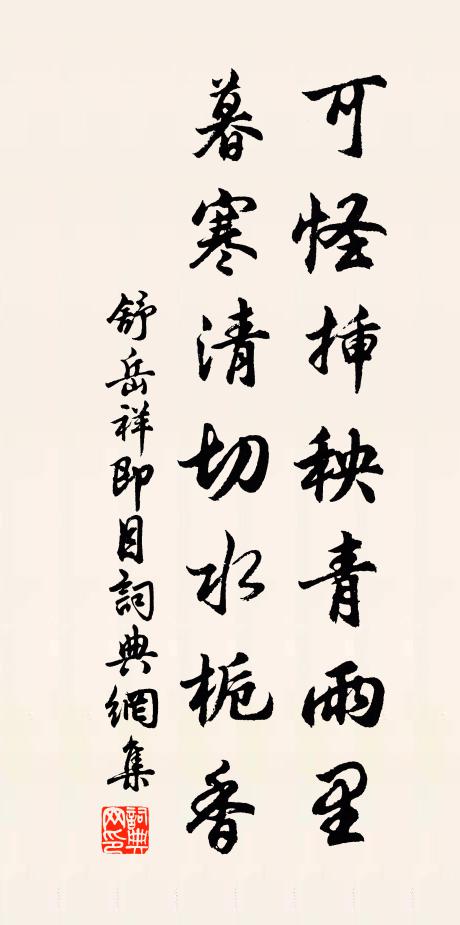 可怪插秧青雨里
暮寒清切水栀香
舒岳祥即目詞典網集
詞典网印